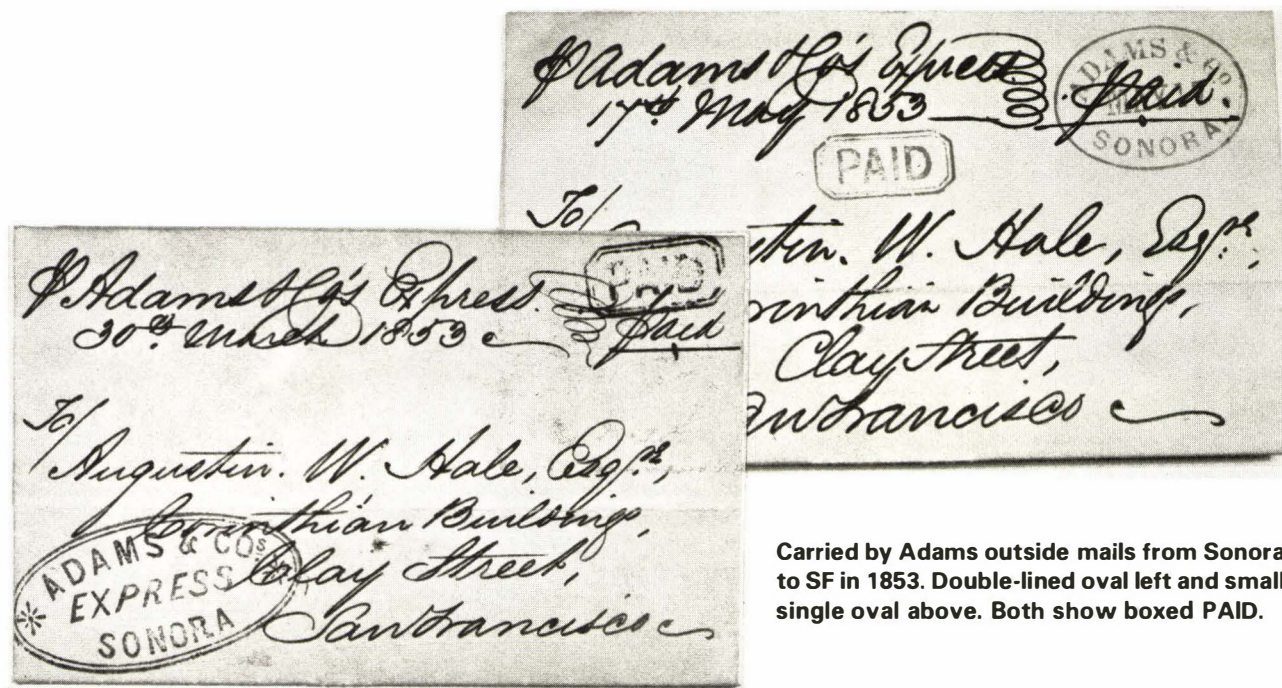 ℘ Adams & Co's Express.
17th May 1853
paid.
ADAMS & Co
SONORA
PAID
To/
stin. W. Hale, Esqre,
rinthian Buildings,
Clay Street,
an Francisco
℘ Adams & Co's Express.
30th March 1853
PAID
paid
To/
Augustin. W. Hale, Esqre,
Corinthian Buildings,
Clay Street,
San Francisco
ADAMS & COs
EXPRESS
SONORA
Carried by Adams outside mails from Sonora
to SF in 1853. Double-lined oval left and small
single oval above. Both show boxed PAID.